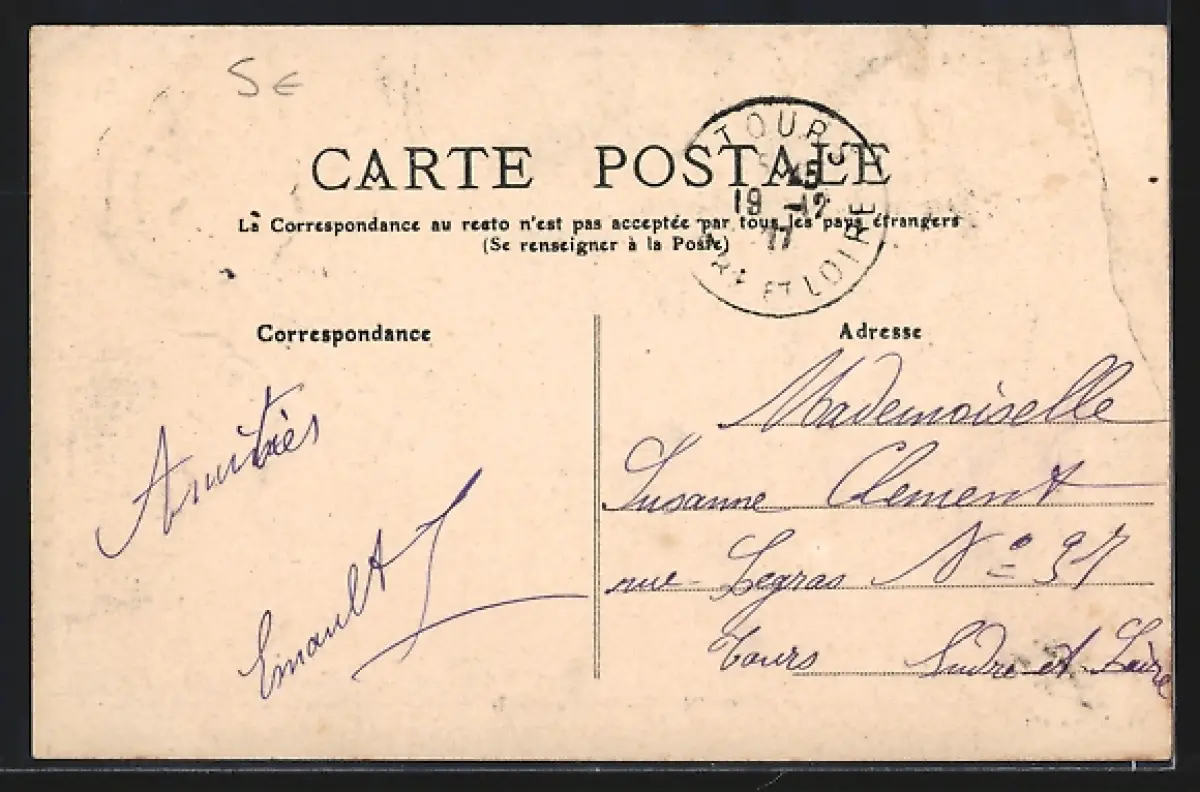 5€
CARTE POSTALE
La Correspondance au recto n'est pas acceptée par tous les pays étrangers
(Se renseigner à la Poste)
TOURS
19 -12
ET LOIRE
Correspondance
Adresse
Amitiés
Mademoiselle
Susanne Clement
rue Legras N° 37
Tours Indre-et-Loire